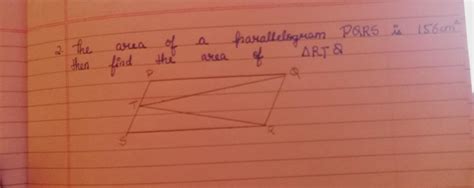 2. The area of a parallelogram PQRS is 156cm²
then find the area of ΔRTQ
P
Q
T
S
R